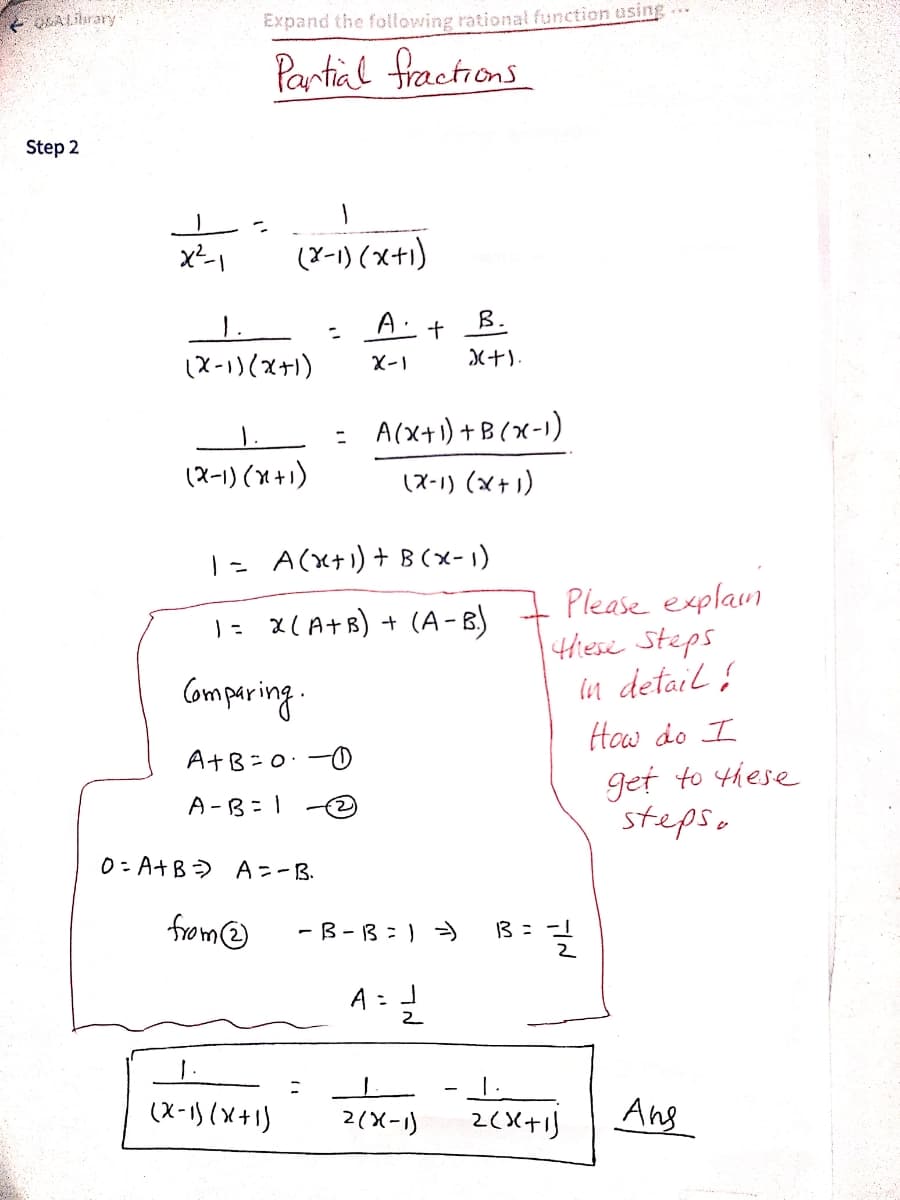 ← Q&A Library
Expand the following rational function using ...
Partial fractions
Step 2
1/(x²-1) = 1/((x-1)(x+1))
1./((x-1)(x+1)) = A./(x-1) + B./(x+1).
1./((x-1)(x+1)) = (A(x+1)+B(x-1))/((x-1)(x+1))
1 = A(x+1) + B(x-1)
1 = x(A+B) + (A-B)
Comparing.
A+B=0. —①
A-B=1 —②
0=A+B ⇒ A=-B.
from ② -B-B=1 ⇒ B = -1/2
A = 1/2
Please explain
these steps
in detail!
How do I
get to these
steps.
1./((x-1)(x+1)) = 1./(2(x-1)) - 1./(2(x+1)) Ans